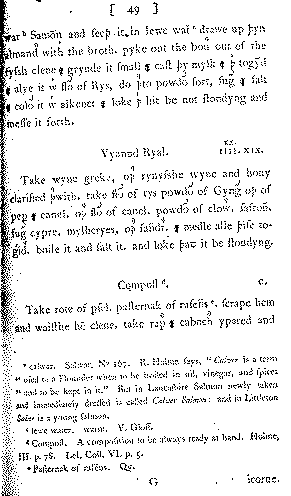 [ 49 ]
war ᵇ Samōn and seeþ it. in lewe waṫ ᶜ drawe up þyn
almand with the broth. pyke out the bon̄ out of the
fyssh clene & grynde it small & cast þy mylk & þ togyd
& alye it w̄ flō of Rys, do þto powdō fort, sug & salt
& colo it w̄ alkenet & loke þ hit be not stondyng and
messe it forth.
Vyannd Ryal. XX. IIII. XIX.
Take wyne greke, oþ rynysshe wyne and hony
clarified þwith. take flō of rys powdō of Gyng oþ of
pep & canel. oþ flō of canel. powdō of clow, safron.
sug cypre. mylberyes, oþ sandr. & medle alle þise to-
gid. boile it and salt it. and loke þat it be stondyng.
Compost ᵈ. C.
Take rote of psel. pasternak of rasens ᵉ. scrape hem
and waisthe hē clene. take rap & caboch ypared and
ᵇ calwar. Salwar, No. 167. R. Holme says, "Calver is a term
"used to a Flounder when to be boiled in oil, vinegar, and spices
"and to be kept in it." But in Lancashire Salmon newly taken
and immediately dressed is called Calver Salmon: and in Littleton
Salar is a young salmon.
ᶜ lewe water. warm. V. Gloss.
ᵈ Compost. A composition to be always ready at hand. Holme,
III. p. 78. Lel. Coll. VI. p. 5.
ᵉ Pasternak of rasens. Qu.
G icorne.